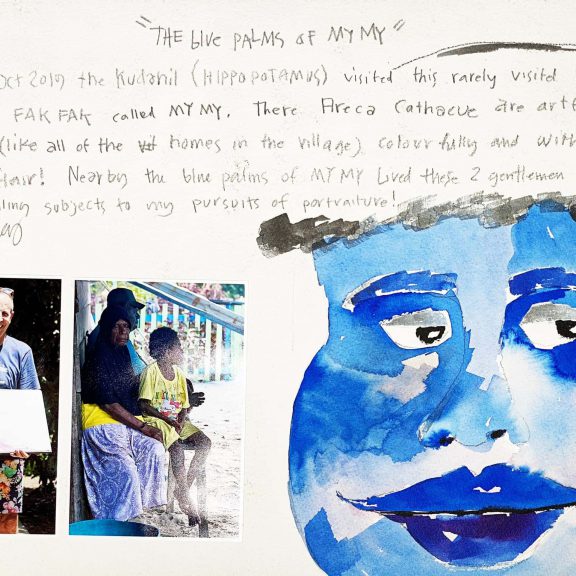 "THE blue PALMS OF MY MY"
Oct 2019 the Kudanil (HIPPOPOTAMUS) visited this rarely visited
FAK FAK called MY MY. There Areca Cathacue are
(like all of the homes in the village) colour fully and with
flair! Nearby the blue palms of MY MY Lived these 2 gentlemen
ling subjects to my pursuits of portraiture!